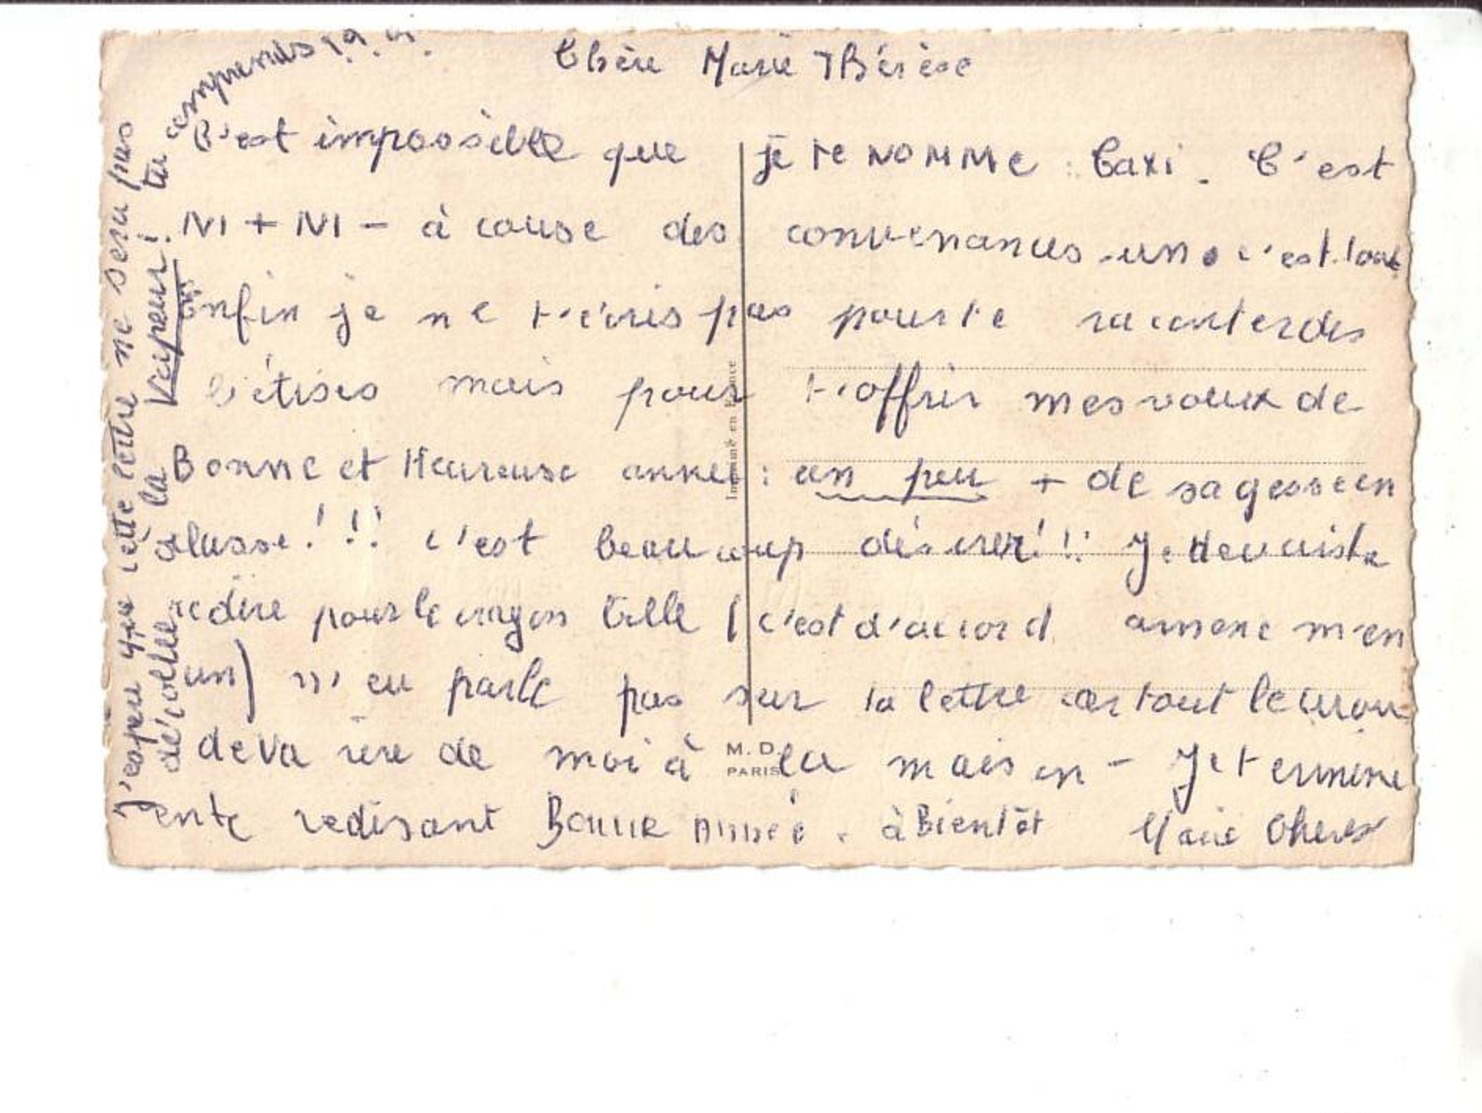 Chère Marie Thérèse
C'est impossible que je te NOMME : Taxi. C'est
NI + NI - à cause des convenances. c'est tout
Enfin je ne t'écris pas pour te raconter des
bêtises mais pour t'offrir mes voeux de
Bonne et Heureuse année : un peu + de sagesse en
classe ! !! c'est beaucoup désirer !!! Je devais te
redire pour le crayon bille (c'est d'accord amène m'en
un) m'en parle pas sur ta lettre car tout le mon
de va rire de moi à la maison - Je termine
en te redisant Bonne Année. à Bientôt Marie
J'espère que cette lettre ne sera pas
décollée à la vapeur ! tu comprends
Imprimé en France
M. D.
PARIS